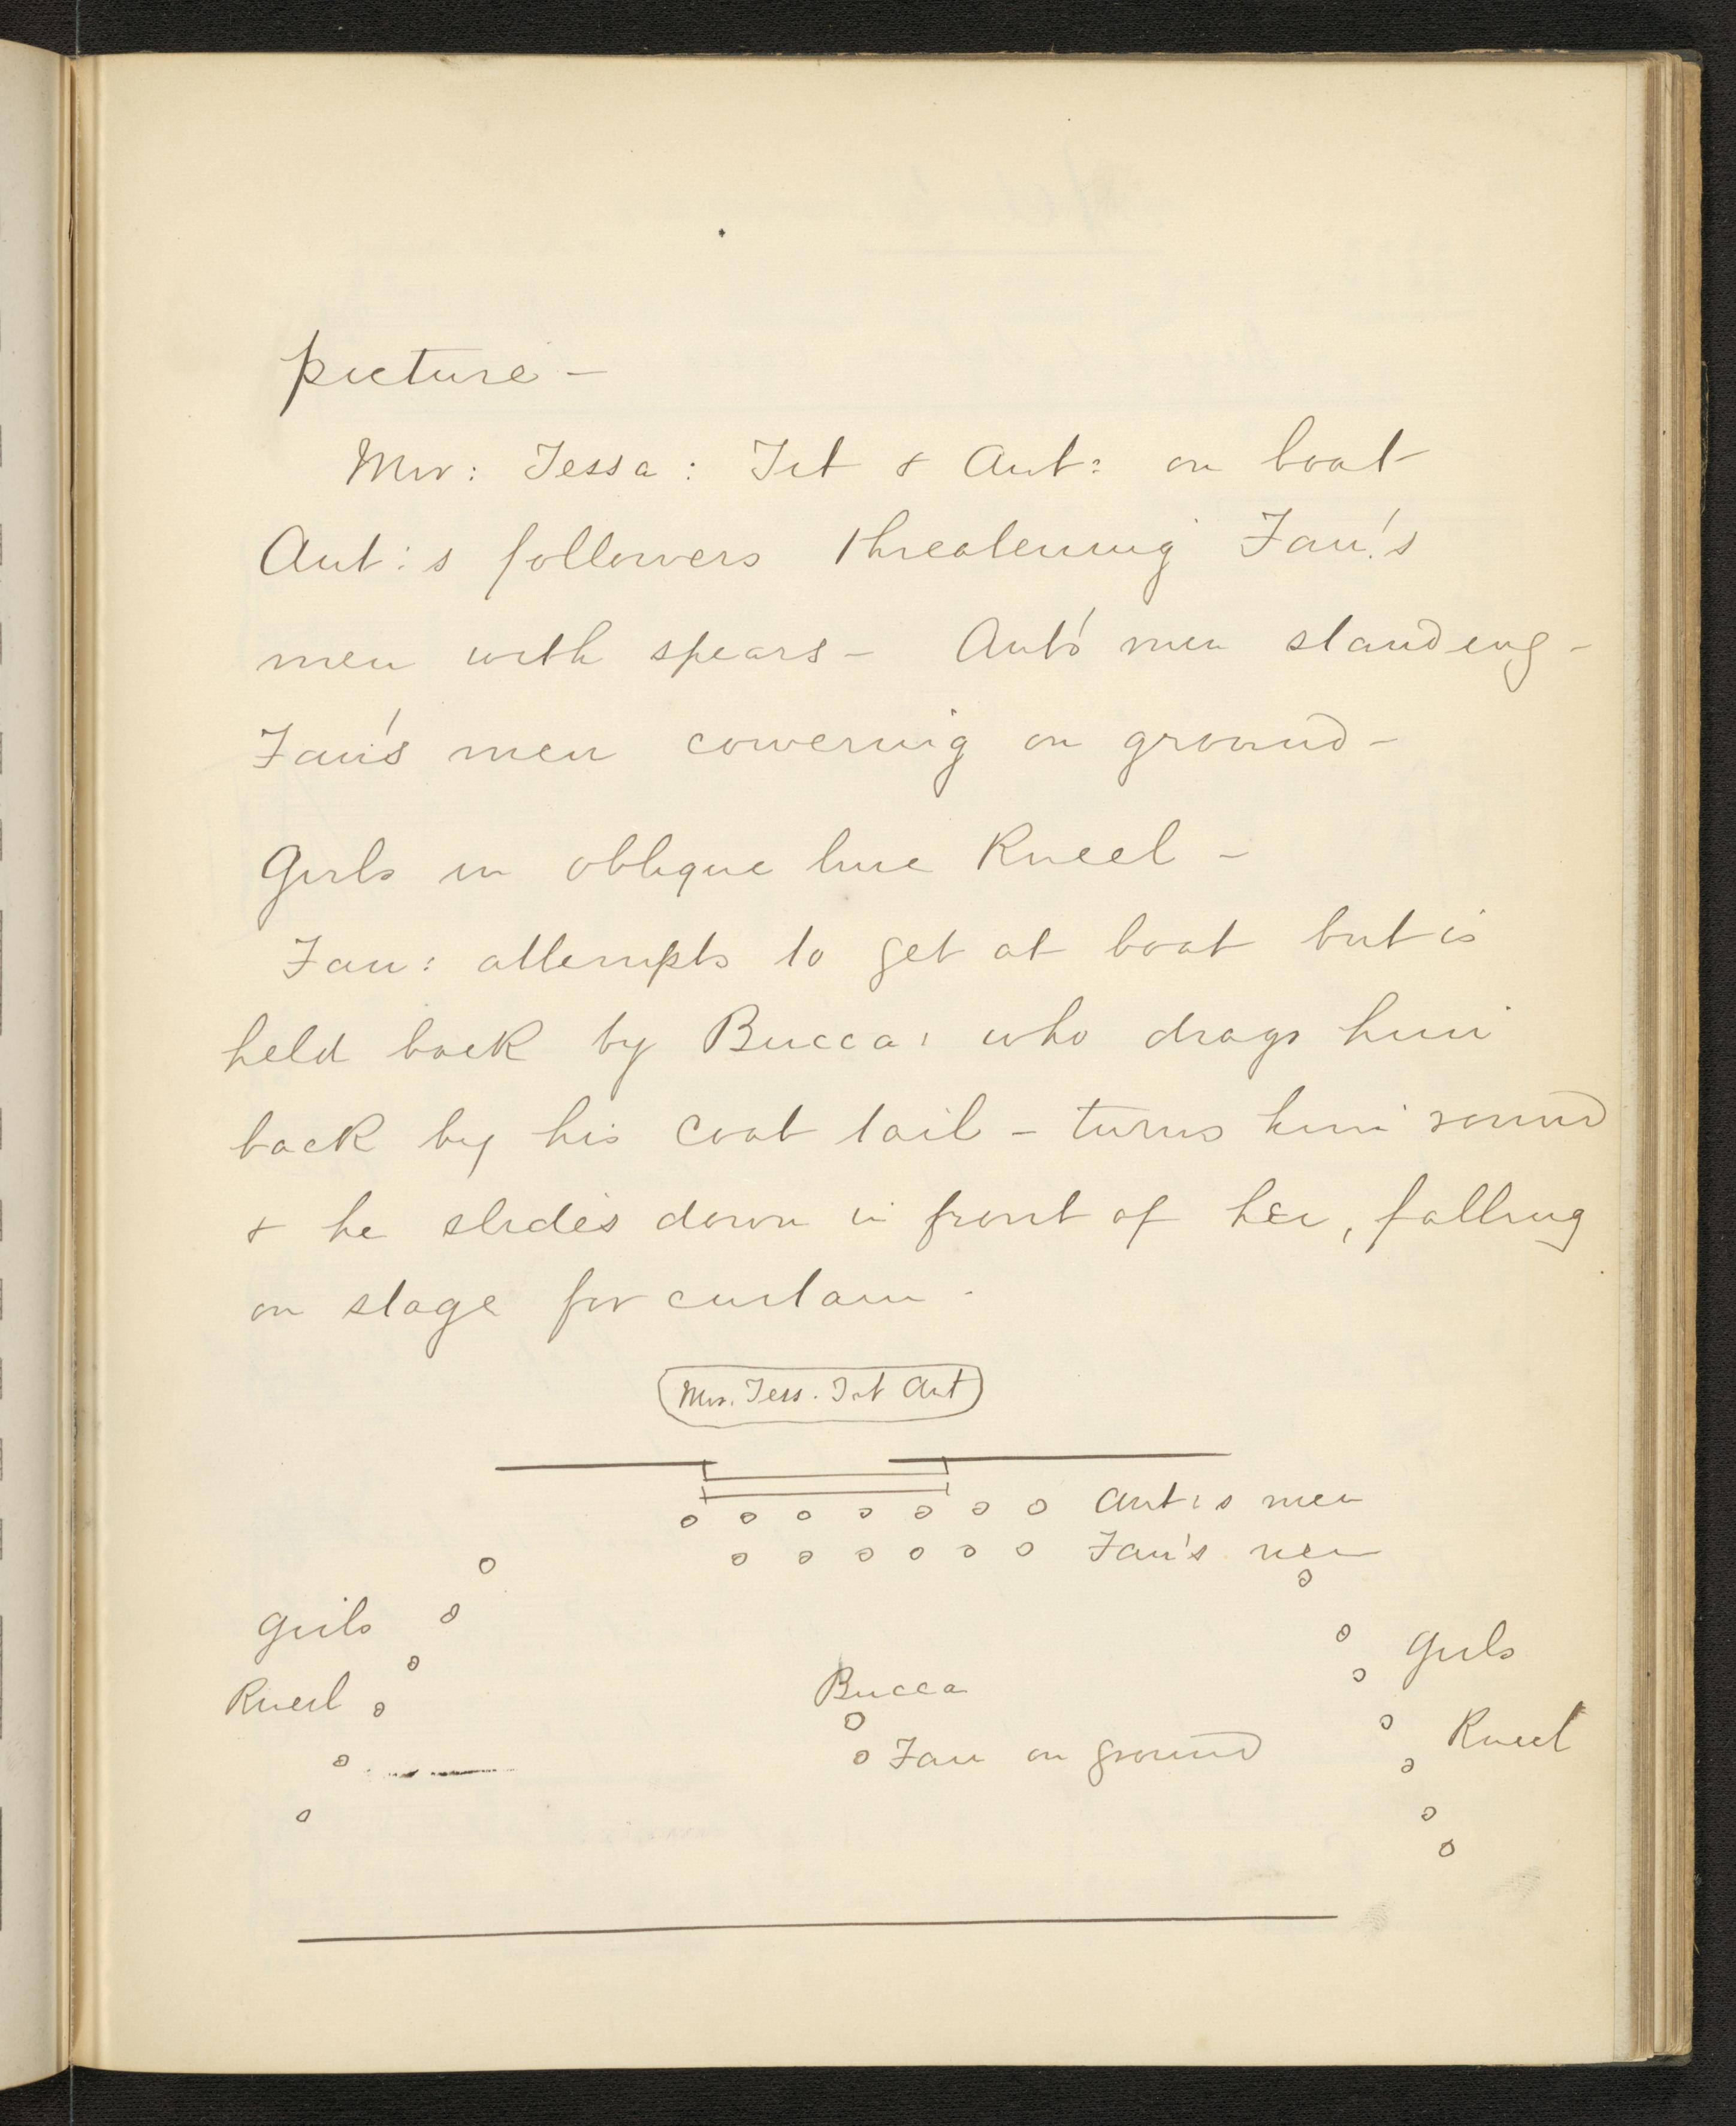 picture –
Mir: Tessa: Tit & Ant: on boat
Ant:s followers threatening Fan:'s
men with spears – Ant's men standing –
Fan's men cowering on ground –
Girls in oblique line Kneel –
Fan: attempts to get at boat but is
held back by Bucca: who drags him
back by his coat tail – turns him round
& he slides down in front of her, falling
on stage for curtain.
Mir. Tess. Tit Ant
Ant:s men
Fan's men
Girls
Kneel
Girls
Kneel
Bucca
Fan on ground